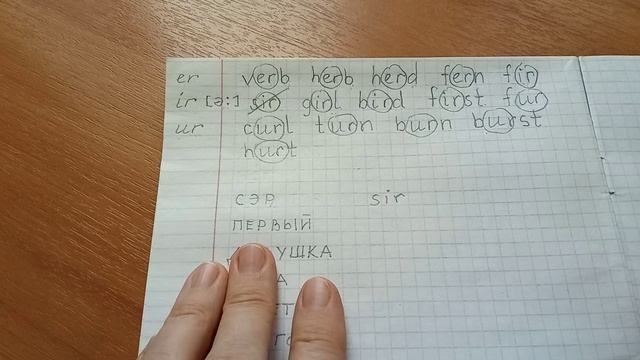 er verb herb herd fern fir
ir [ə:] sir girl bird first fur
ur curl turn burn burst
hurt
СЭР sir
ПЕРВЫЙ